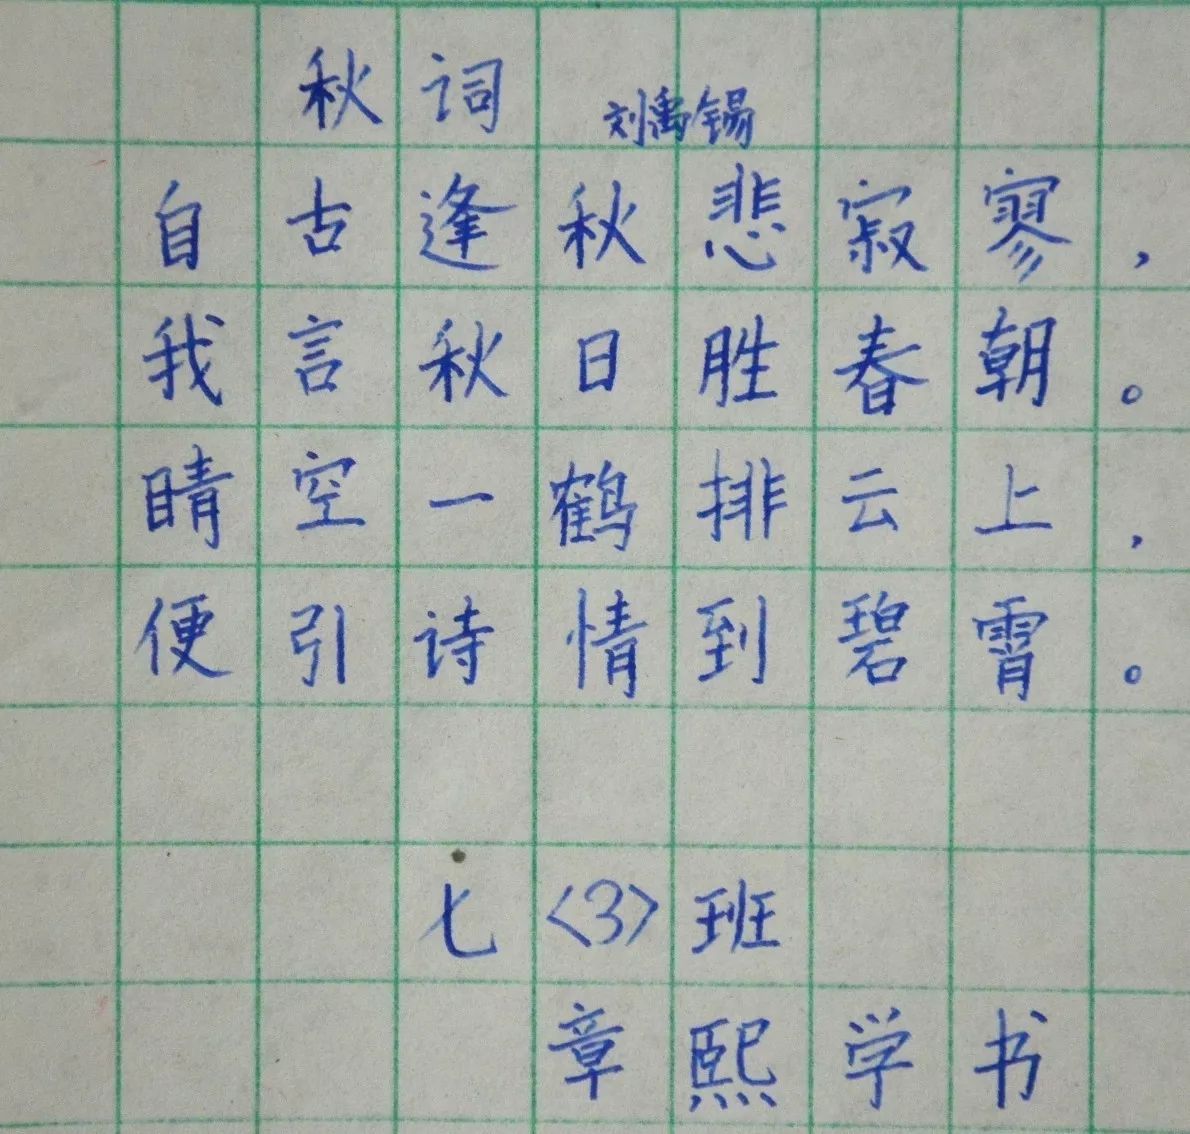 秋词 刘禹锡
自古逢秋悲寂寥，
我言秋日胜春朝。
晴空一鹤排云上，
便引诗情到碧霄。
七〈3〉班
章熙学书